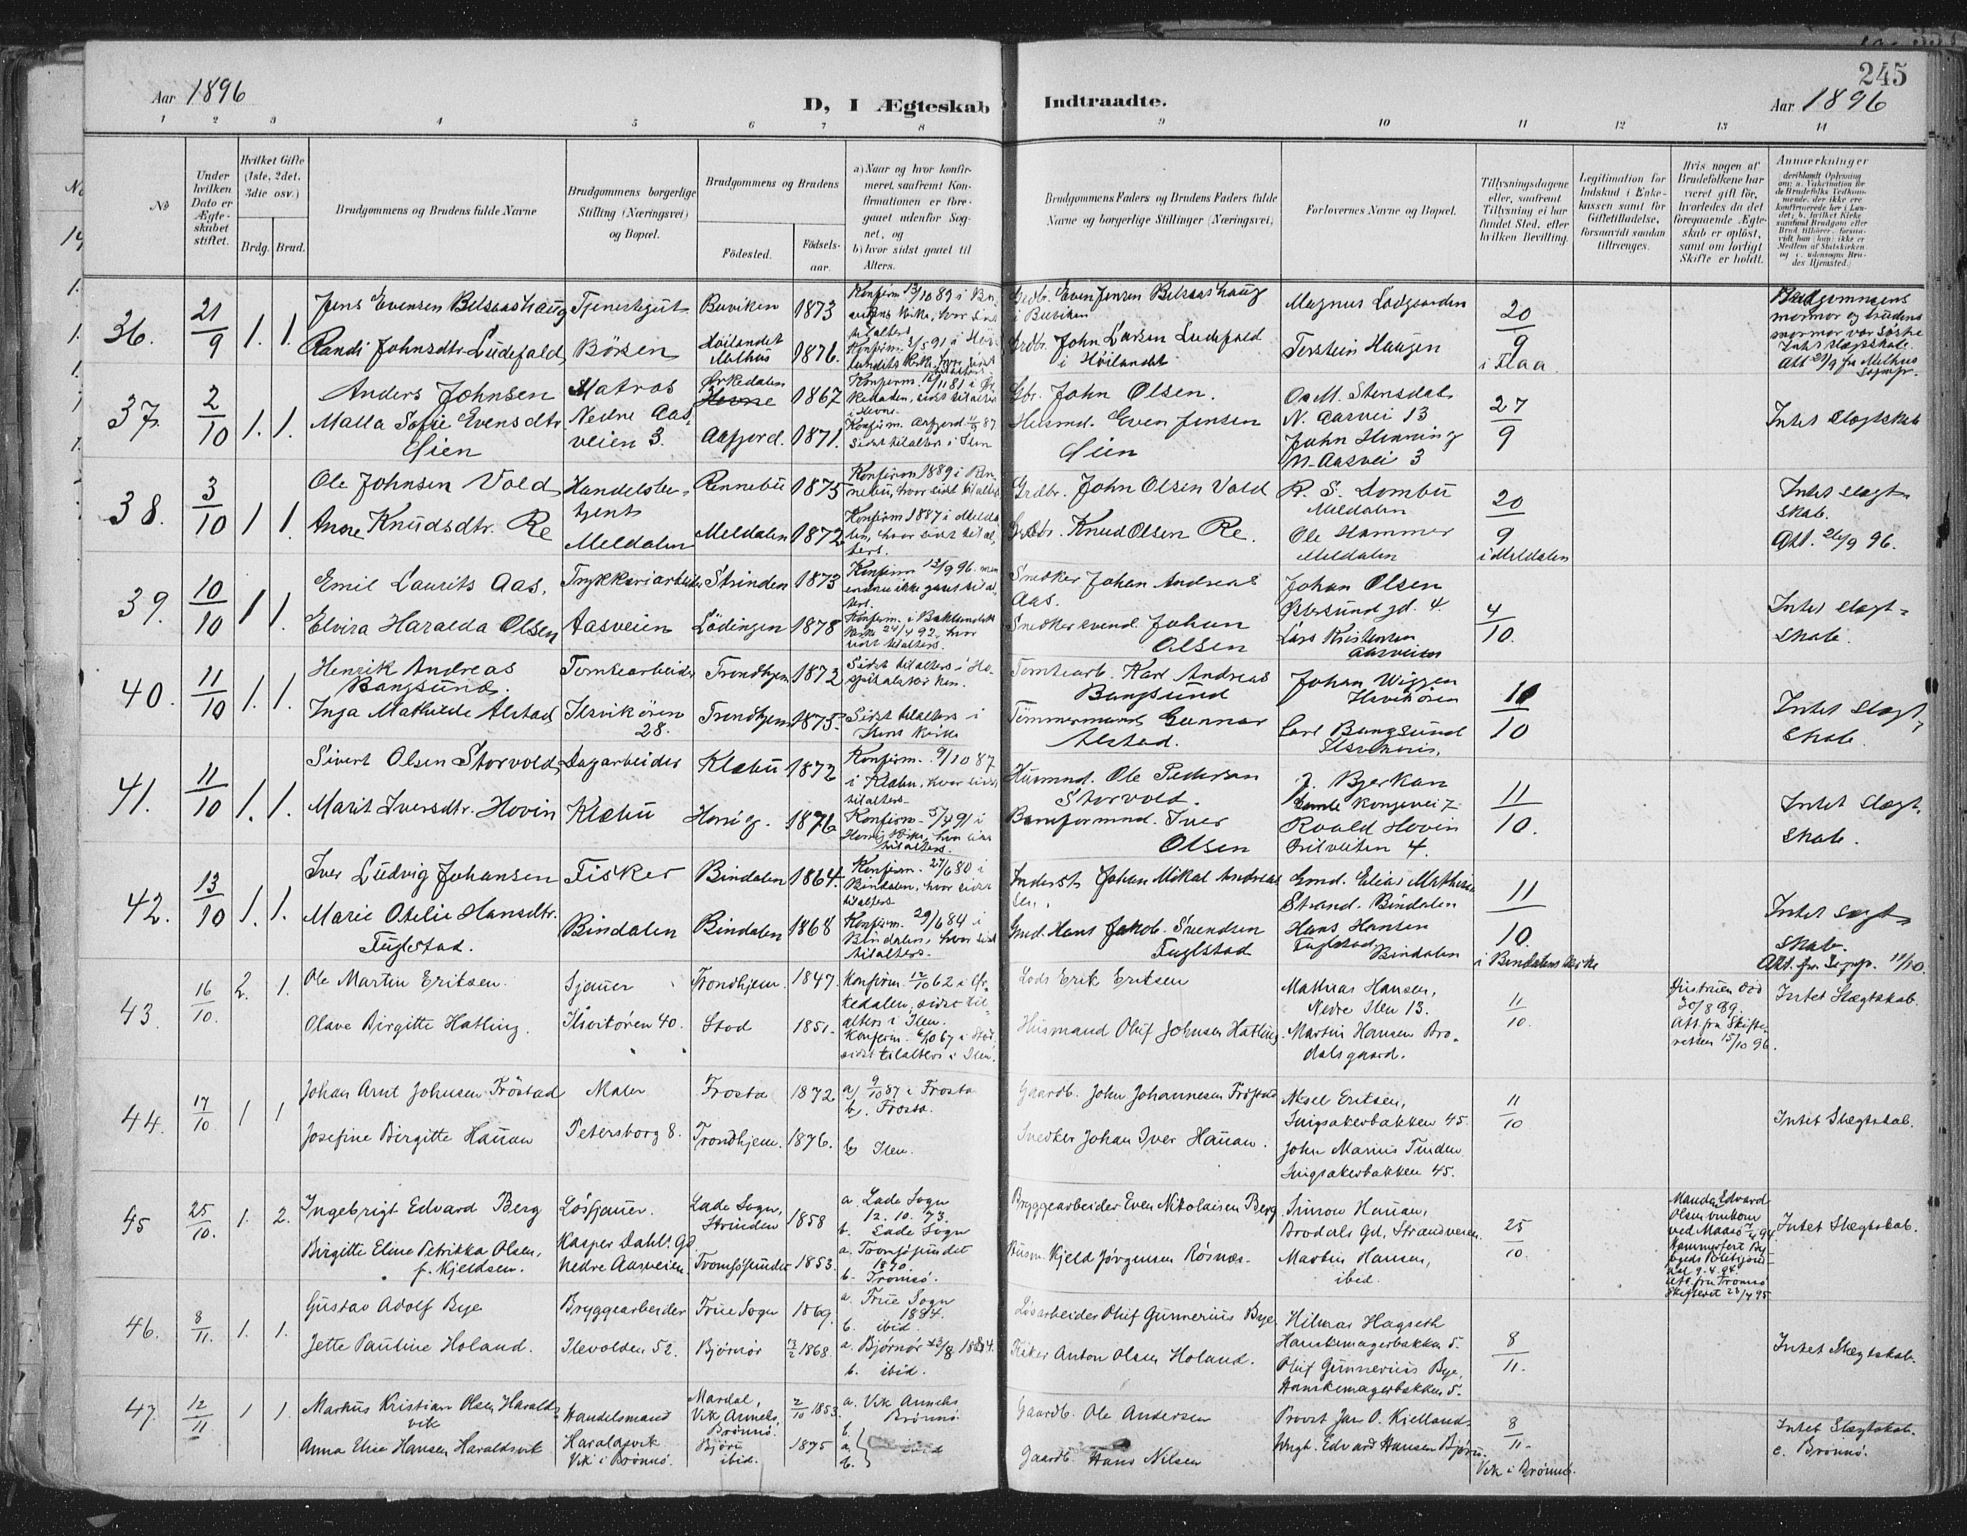 245
Aar 1896
D, I Ægteskab Indtraadte.
Aar 1896
1 2 3 4 5 6 7 8 9 10 11 12 13 14
No
Under hvilken Dato er Ægteskabet stiftet.
Hvilket Gifte (1ste, 2det, 3die osv.)
Brdg. Brud.
Brudgommens og Brudens fulde Navne
Brudgommens borgerlige Stilling (Næringsvei) og Bopæl.
Brudgommens og Brudens
Fødested. Fødselsaar.
a) Naar og hvor konfirmeret, saafremt Konfirmationen er foregaaet udenfor Sognet, og
b) hvor sidst gaaet til Alters.
Brudgommens Faders og Brudens Faders fulde Navne og borgerlige Stillinger (Næringsvei)
Forlovernes Navne og Bopæl.
Tillysningsdagene eller, saafremt Tillysning ei har fundet Sted, efter hvilken Bevilling.
Legitimation for Indskud i Enkekassen samt for Giftetilladelse, forsaavidt saadan tiltrænges.
Hvis nogen af Brudefolkene har været gift før, hvorledes da det foregaaende Ægteskab er opløst, samt om lovligt Skifte er holdt.
Anmerkninger
36. 21/9 1. 1.
Jens Evensen Belsaashaug Tjenestegut Buviken 1873
Grdb. Even Jensen Belsaashaug i Buviken
Magnus Lodgaarden
20/9 i Flaa
Brudgommens mormor og brudens mormor var søstre
Randi Johnsdtr. Ludefald Børsen Høilandet Melhus 1876.
Grdbr. John Larsen Ludefald i Høilandet
Torstein Haugen
37. 2/10 1. 1.
Anders Johnsen Matros Orkedalen 1867
Gbr. John Olsen.
O. M. Stensdal N. Aasvei 13
27/9
Intet Slægtskab
Malla Sofie Evensdtr Øien Nedre Aasveien 3. Aafjord. 1871.
Husmd. Even Jensen Øien
John Henning N. Aasvei 3
38. 3/10 1 1.
Ole Johnsen Vold Handelsbetjent Rennebu 1875
Konfirm 1889 i Rennebu, hvor sidst til alters
Grdbr. John Olsen Vold
Meldalen
20/9 i Meldalen
Intet slægtskab.
Att. 26/9 96.
Anne Knudsdtr. Re Meldalen Meldalen 1872
Konfirm 1887 i Meldalen, hvor sidst til alters.
Grdbr. Knud Olsen Re.
Ole Hammer Meldalen
39. 10/10 1 1.
Emil Laurits Aas. Trykkeriarbeider Strinden 1873
Konfirm 13/9 96. men endnu ikke gaaet til alters.
Snedker Johan Andreas Aas.
Johan Olsen
4/10.
Intet slægtskab.
Elvira Haralda Olsen Aasveien Lödingen 1878
Konfirm. i Baklandets Kirke 24/4 92, hvor sidst til alters.
Snedkersvend Johan Olsen
Lars Kristensen Aasveien
40. 11/10 1. 1.
Henrik Andreas Bangsund. Tomtearbeider Trondhjem 1872
Sidst til alters i Hospitalskirken.
Tomtearb. Karl Andreas Bangsund
Johan Wiggen Ilsvikören
11/10
Intet Slægtskab.
Inga Mathilde Alstad Ilsvikören 28. Trondhjem 1875.
Sidst til alters i Ilens Kirke
Tømmermand Gunnar Alstad.
Carl Bangsund
41. 11/10 1. 1.
Sivert Olsen Storvold Dagarbeider Klæbu 1872
Konfirm. 9/10 87 i Klæbu, hvor sidst til alters.
Husmnd. Ole Pedersen Storvold.
J. Bjerkan Gamle Kongevei 7
11/10.
Intet Slægtskab.
Marit Iversdtr. Hovin Klæbu Horrig. 1876
Baneformnd. Iver Olsen
Roald Hovin
42. 13/10 1. 1.
Iver Ludvig Johansen Fisker Bindalen 1864.
Konfirm. 27/6 80 i Bindalen, hvor sidst til alters
Inderst Johan Mikal Andreassen.
Gmd. Elias Mathisen Strand. Bindalen
11/10. i Bindalens Kirke
Intet slægtskab.
Att. fra Sognepr. 11/10.
Marie Otelie Hansdtr. Fuglestad. Bindalen Bindalen 1868
Konfirm. 29/6 84 i Bindalen, hvor sidst til alters.
Gmd. Hans Jakob Svendsen Fuglstad
Hans Hansen Fuglstad Bindalen
43. 16/10. 2. 1.
Ole Martin Eriksen. Sjauer Trondhjem. 1847.
Konfirm. 12/10 62 i Orkedalen, sidst til alters i Ilen.
Lods Erik Eriksen
Mathias Hansen, Nedre Ilen 13.
11/10
Hustruen död 30/8 89. Att. fra Skifteretten 15/10 96.
Intet Slægtskab.
Olave Birgitte Hatling. Ilsvikören 40. Stod 1851.
Konfirm. 6/10 67 i Stod, sidst til alters i Ilen.
Husmand Oluf Johnsen Hatling.
Martin Hansen Brodalsgaard.
44. 17/10 1 1
Johan Arnt Johnsen Fröstad Maler Frosta 1872
a) 9/10 87 i Frosta
b. Frosta.
Gaardb. John Johannesen Fröstad
Aksel Eriksen, Singsakerbakken 45.
11/10
Intet Slægtskab.
Josefine Birgitte Hauan Petersborg 8. Trondhjem. 1876.
b Ilen.
Snedker Johan Iver Hauan.
John Marius Tinden Singsakerbakken 45.
45 25/10. 1. 2.
Ingebrigt Edvard Berg Løssjauer. Lade Sogn, Strinden 1858
a Lade Sogn 12. 10. 73.
b. Lade Sogn
Bryggearbeider Even Nikolaisen Berg
Simon Hauan, Brodals Gd, Strandveien.
25/10.
Manden Edvard Olsen omkom ved Maasø
Att. fra Tromsø Skifteret 23/4 95
Intet Slægtskab.
Birgitte Eline Petrikka Olsen, f. Kjeldsen. Kasper Dahls Gd nedre Aasveien Tromsösundet 1853.
a. Tromsösundet 1870.
b. Tromsø.
Husm. Kjeld Jørgensen Røsnæs.
Martin Hansen, ibid.
46. 8/11. 1. 1.
Gustav Adolf Bye Bryggearbeider Frue Sogn 1869.
a. Frue Sogn 1884.
b. ibid.
Løsarbeider Oluf Gunnerius Bye.
Hilmar Hagseth Hanskemagerbakken 5.
8/11.
Intet Slægtskab.
Jette Pauline Holand. Ilevolden 52. Bjørnør 13/2 1868.
b. ibid.
Fisker Anton Olsen Holand.
Oluf Gunnerius Bye, Hanskemagerbakken 5.
47. 12/11 1 1.
Markus Kristian Olsen Haraldsvik Handelsmand
Mardal, Vik Anneks, Brønnø. 2/10 1853.
a. Vik Anneks Brønnø
b.
Gaardb. Ole Andersen
Provst Jan O. Kielland
8/11. Vik i Brønnø.
Intet Slægtskab.
c. Brønnø.
Anna Elise Hansen Haraldsvik Haraldsvik Vik i Brønnø. ibid. 1875
a. b. ibid
Gaardb. Hans Nilsen
Ungk. Edvard Hansen